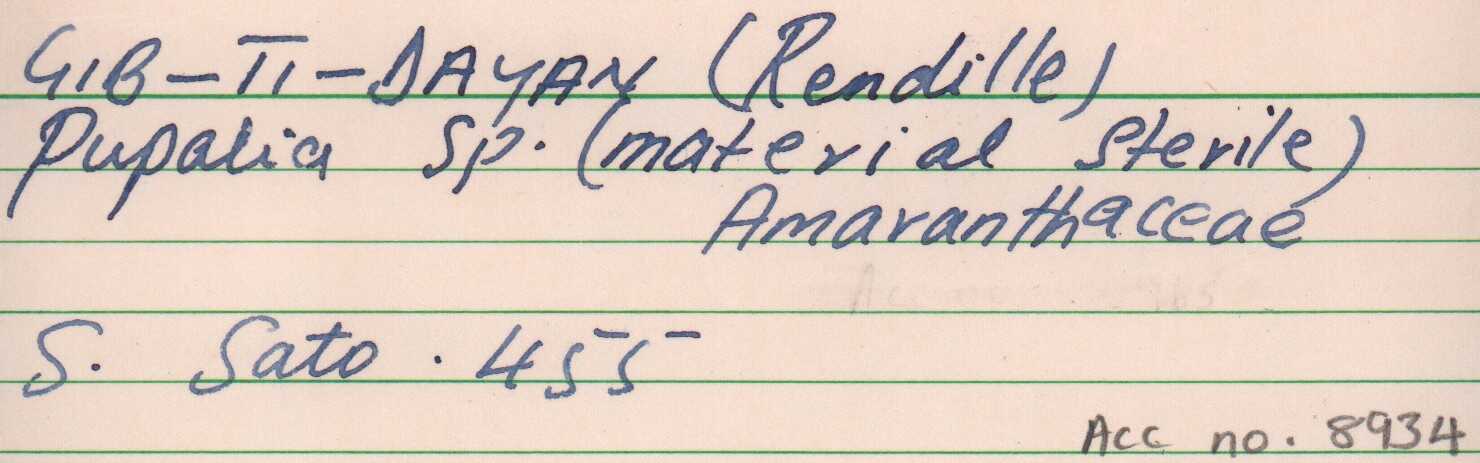 GIB-TI-DAYAN (Rendille)
Pupalia Sp. (material Sterile)
Amaranthaceae
S. Sato. 455
Acc no. 8934